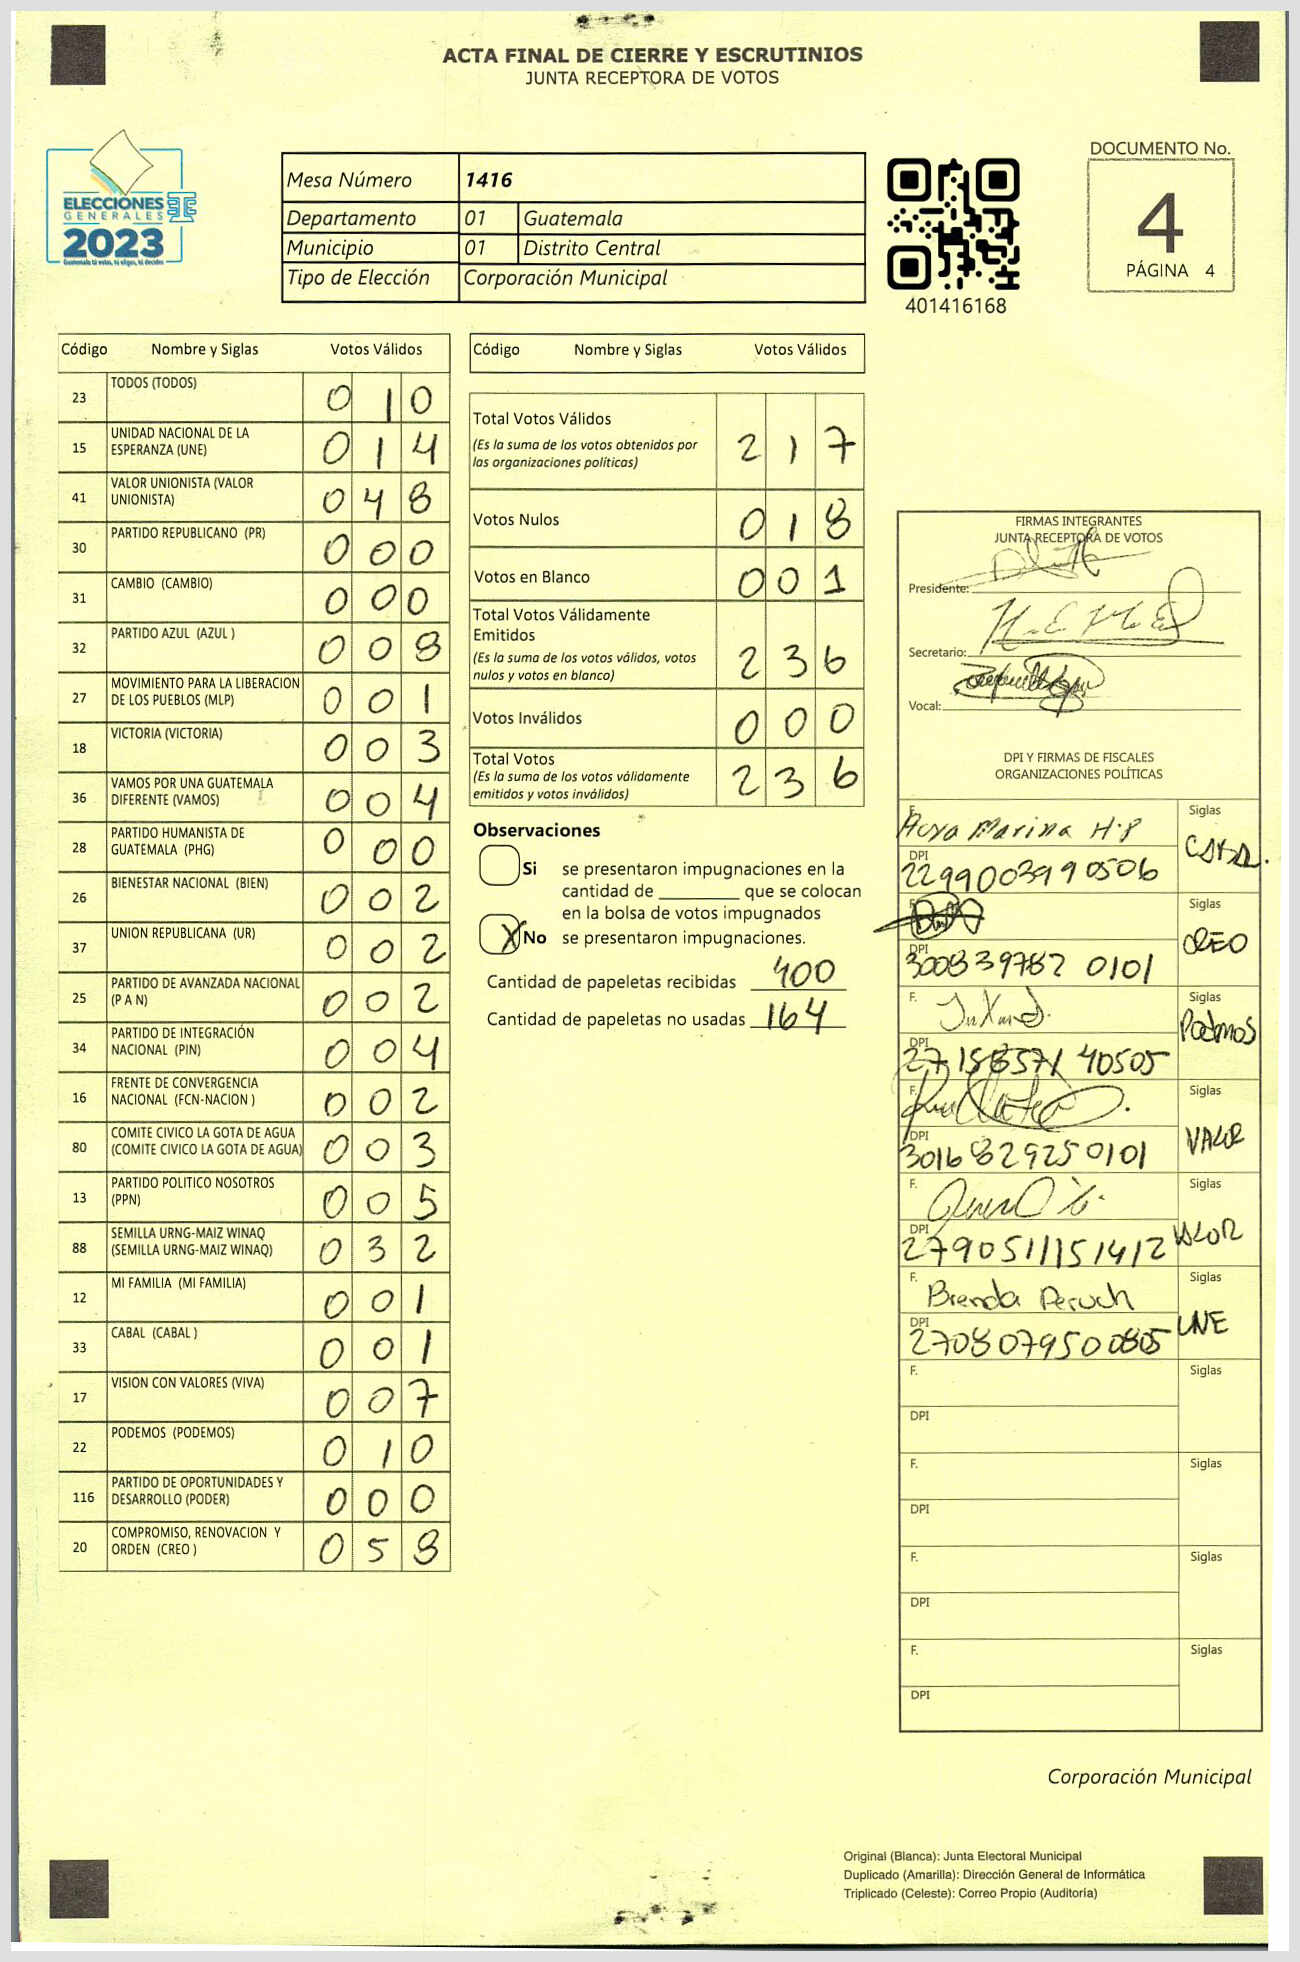 ACTA FINAL DE CIERRE Y ESCRUTINIOS
JUNTA RECEPTORA DE VOTOS
ELECCIONES
GENERALES
2023
Guatemala tú estas, tú eliges, tú decides
Mesa Número 1416
Departamento 01 Guatemala
Municipio 01 Distrito Central
Tipo de Elección Corporación Municipal
401416168
DOCUMENTO No.
4
PÁGINA 4
Código Nombre y Siglas Votos Válidos
23 TODOS (TODOS) 0 1 0
15 UNIDAD NACIONAL DE LA
ESPERANZA (UNE) 0 1 4
41 VALOR UNIONISTA (VALOR
UNIONISTA) 0 4 8
30 PARTIDO REPUBLICANO (PR) 0 0 0
31 CAMBIO (CAMBIO) 0 0 0
32 PARTIDO AZUL (AZUL ) 0 0 8
27 MOVIMIENTO PARA LA LIBERACION
DE LOS PUEBLOS (MLP) 0 0 1
18 VICTORIA (VICTORIA) 0 0 3
36 VAMOS POR UNA GUATEMALA
DIFERENTE (VAMOS) 0 0 4
28 PARTIDO HUMANISTA DE
GUATEMALA (PHG) 0 0 0
26 BIENESTAR NACIONAL (BIEN) 0 0 2
37 UNION REPUBLICANA (UR) 0 0 2
25 PARTIDO DE AVANZADA NACIONAL
(P A N) 0 0 2
34 PARTIDO DE INTEGRACIÓN
NACIONAL (PIN) 0 0 4
16 FRENTE DE CONVERGENCIA
NACIONAL (FCN-NACION ) 0 0 2
80 COMITE CIVICO LA GOTA DE AGUA
(COMITE CIVICO LA GOTA DE AGUA) 0 0 3
13 PARTIDO POLITICO NOSOTROS
(PPN) 0 0 5
88 SEMILLA URNG-MAIZ WINAQ
(SEMILLA URNG-MAIZ WINAQ) 0 3 2
12 MI FAMILIA (MI FAMILIA) 0 0 1
33 CABAL (CABAL ) 0 0 1
17 VISION CON VALORES (VIVA) 0 0 7
22 PODEMOS (PODEMOS) 0 1 0
116 PARTIDO DE OPORTUNIDADES Y
DESARROLLO (PODER) 0 0 0
20 COMPROMISO, RENOVACION Y
ORDEN (CREO ) 0 5 8
Código Nombre y Siglas Votos Válidos
Total Votos Válidos 2 1 7
(Es la suma de los votos obtenidos por
las organizaciones políticas)
Votos Nulos 0 1 8
Votos en Blanco 0 0 1
Total Votos Válidamente
Emitidos 2 3 6
(Es la suma de los votos válidos, votos
nulos y votos en blanco)
Votos Inválidos 0 0 0
Total Votos 2 3 6
(Es la suma de los votos válidamente
emitidos y votos inválidos)
Observaciones
Si se presentaron impugnaciones en la
cantidad de ________ que se colocan
en la bolsa de votos impugnados
X No se presentaron impugnaciones.
Cantidad de papeletas recibidas 400
Cantidad de papeletas no usadas 164
FIRMAS INTEGRANTES
JUNTA RECEPTORA DE VOTOS
Presidente:
Secretario:
Vocal:
DPI Y FIRMAS DE FISCALES
ORGANIZACIONES POLÍTICAS
F. Marina H.P Siglas
DPI
2299003990506
F. Siglas CREO
DPI
300839782 0101
F. Siglas Podmos
DPI
F. Siglas VALOR
DPI
3016829250101
F. Siglas VALOR
DPI
2790511151412
F. Brenda Peruch Siglas UNE
DPI
2708079500805
F. Siglas
DPI
F. Siglas
DPI
F. Siglas
DPI
F. Siglas
DPI
Corporación Municipal
Original (Blanca): Junta Electoral Municipal
Duplicado (Amarilla): Dirección General de Informática
Triplicado (Celeste): Correo Propio (Auditoría)